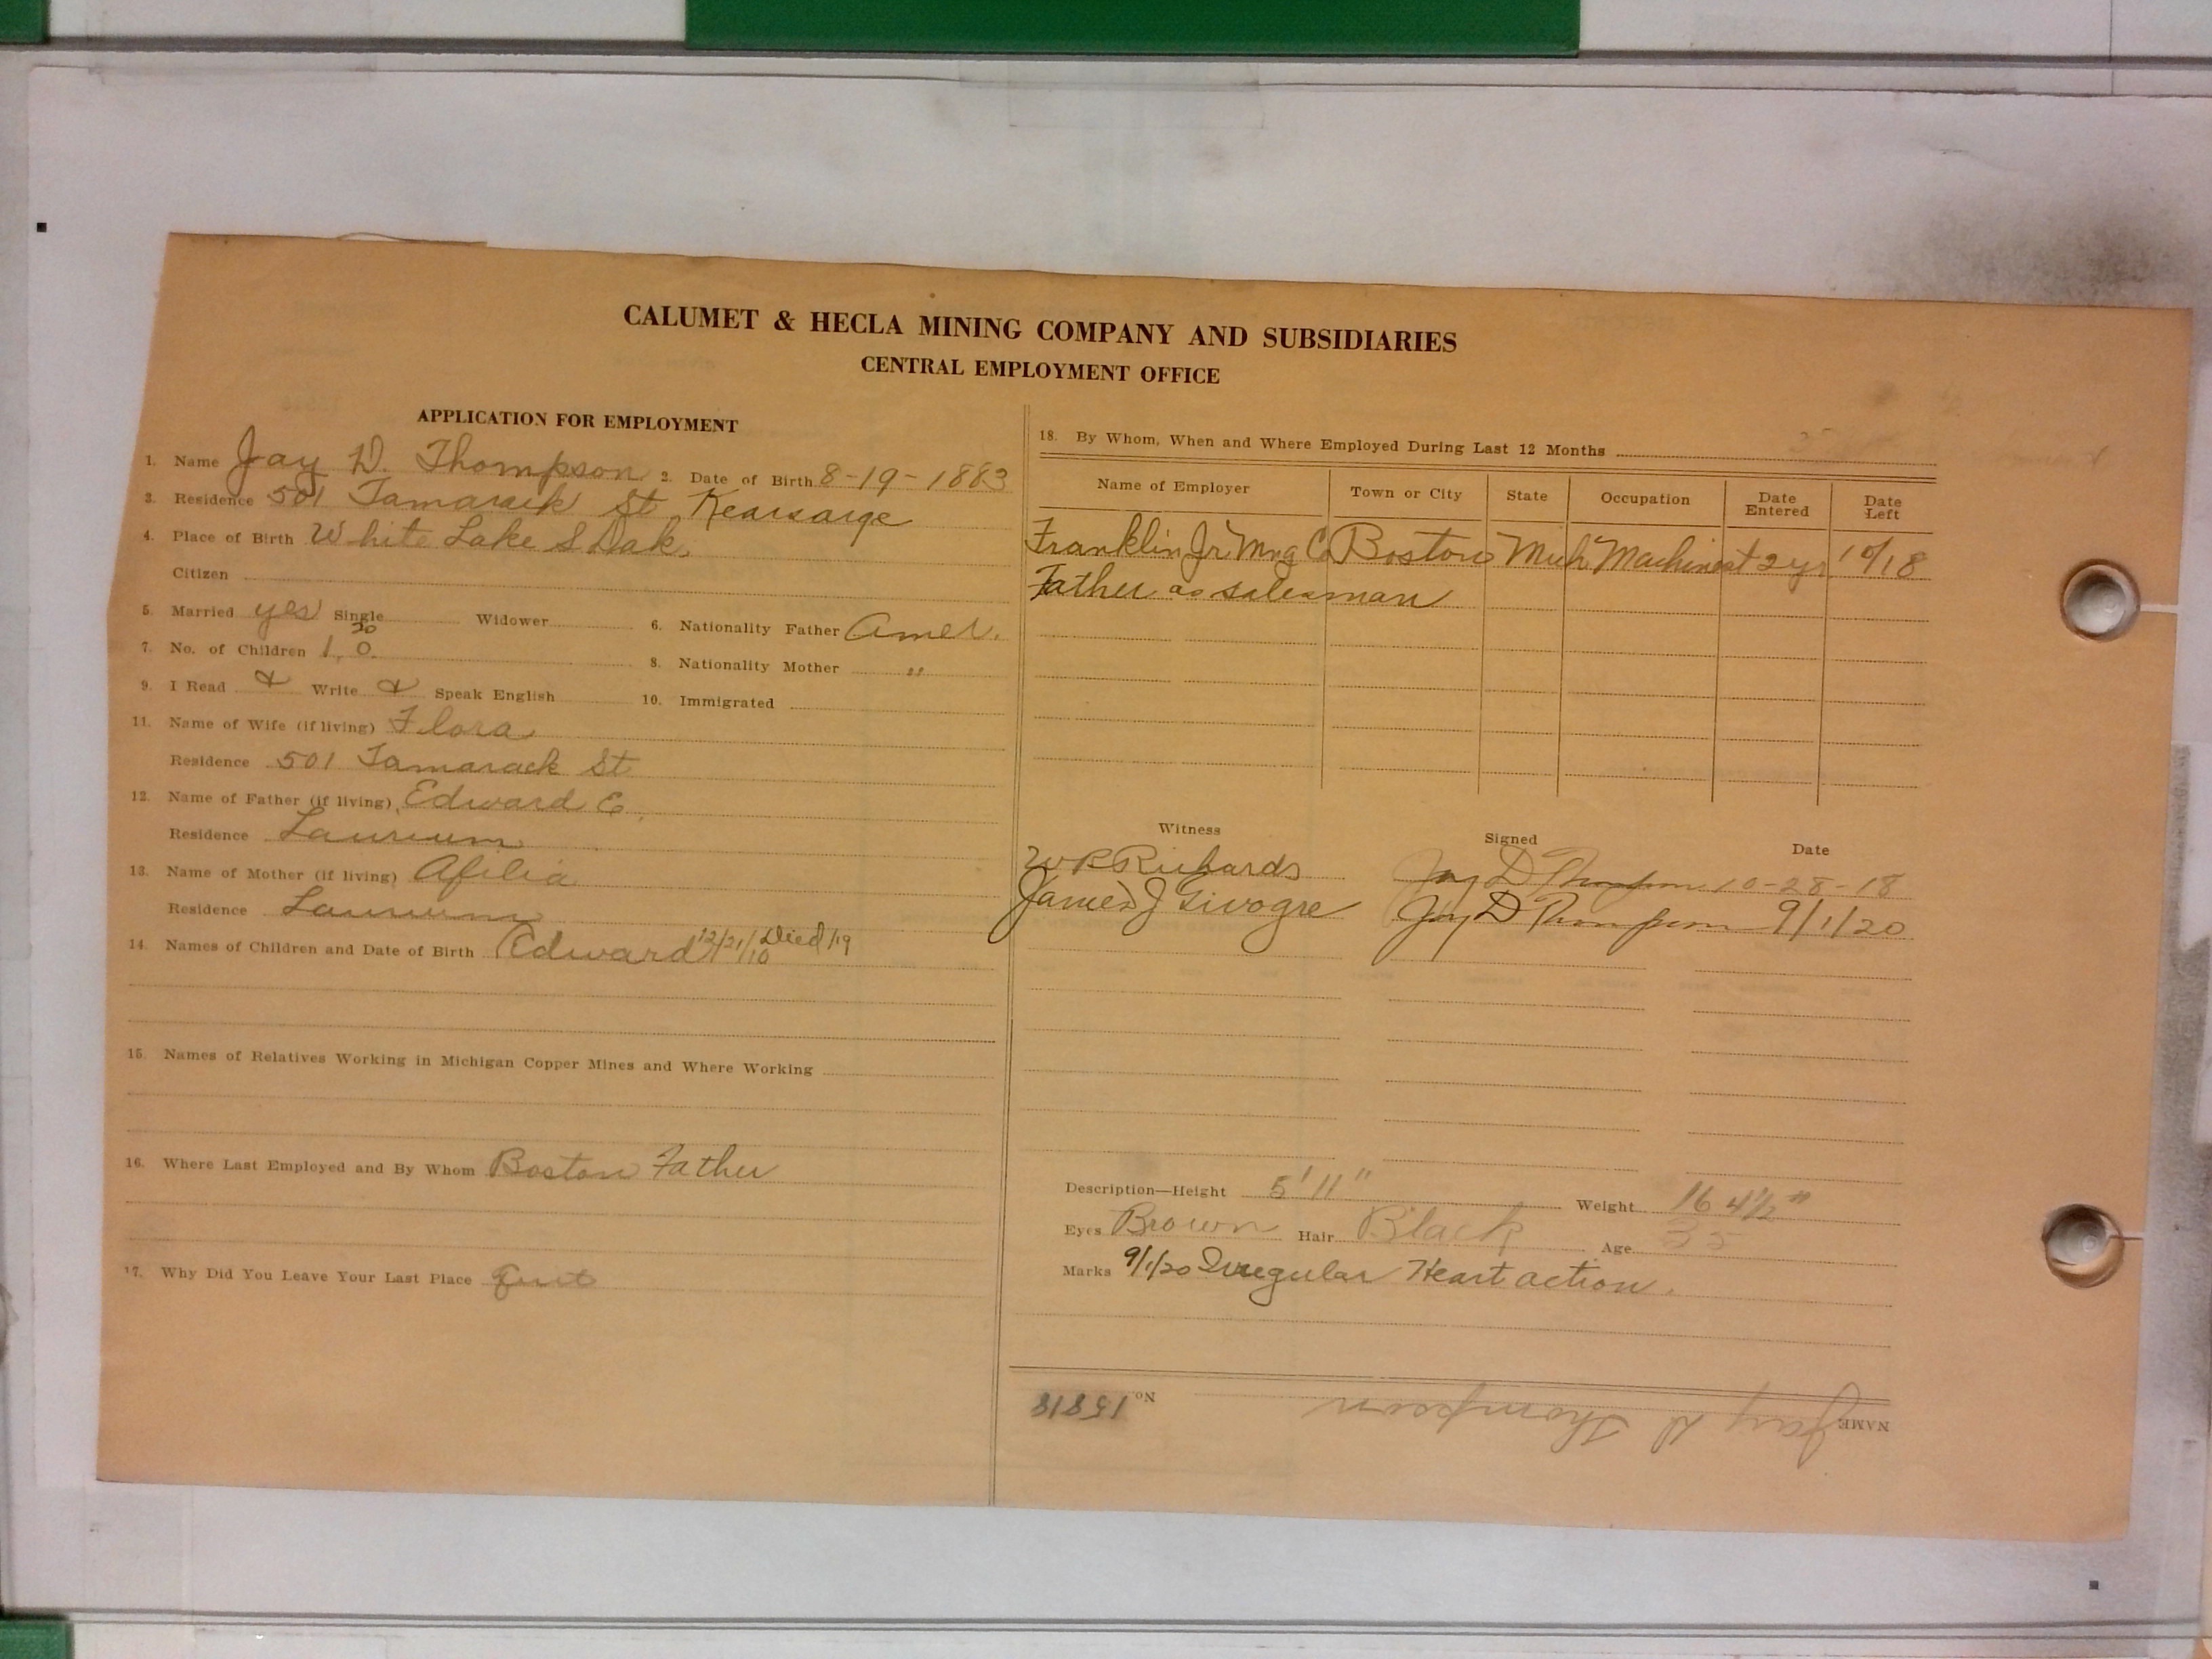 CALUMET & HECLA MINING COMPANY AND SUBSIDIARIES
CENTRAL EMPLOYMENT OFFICE
APPLICATION FOR EMPLOYMENT
1. Name Jay D. Thompson 2. Date of Birth 8-19-1883
3. Residence 501 Tamarack St Kearsarge
4. Place of Birth White Lake S Dak.
Citizen
5. Married yes Single Widower 6. Nationality Father Amer.
20
7. No. of Children 1, 0. 8. Nationality Mother "
9. I Read & Write & Speak English 10. Immigrated
11. Name of Wife (if living) Flora
Residence 501 Tamarack St
12. Name of Father (if living) Edward E.
Residence Laurium
13. Name of Mother (if living) Afilia
Residence Laurium
14. Names of Children and Date of Birth Edward 12/21/10 Died/19
15. Names of Relatives Working in Michigan Copper Mines and Where Working
16. Where Last Employed and By Whom Boston Father
17. Why Did You Leave Your Last Place Quit
18. By Whom, When and Where Employed During Last 12 Months
Name of Employer Town or City State Occupation Date Entered Date Left
Franklin Jr Mng Co Boston Mich Machinest 2 yr 10/18
Father as salesman
Witness Signed Date
W R Richards Jay D Thompson 10-28-18
James J Givogre Jay D Thompson 9/1/20
Description—Height 5'11" Weight 164½ "
Eyes Brown Hair Black Age 35
Marks 9/1/20 Irregular Heart action.
NAME Jay D Thompson No. 15818